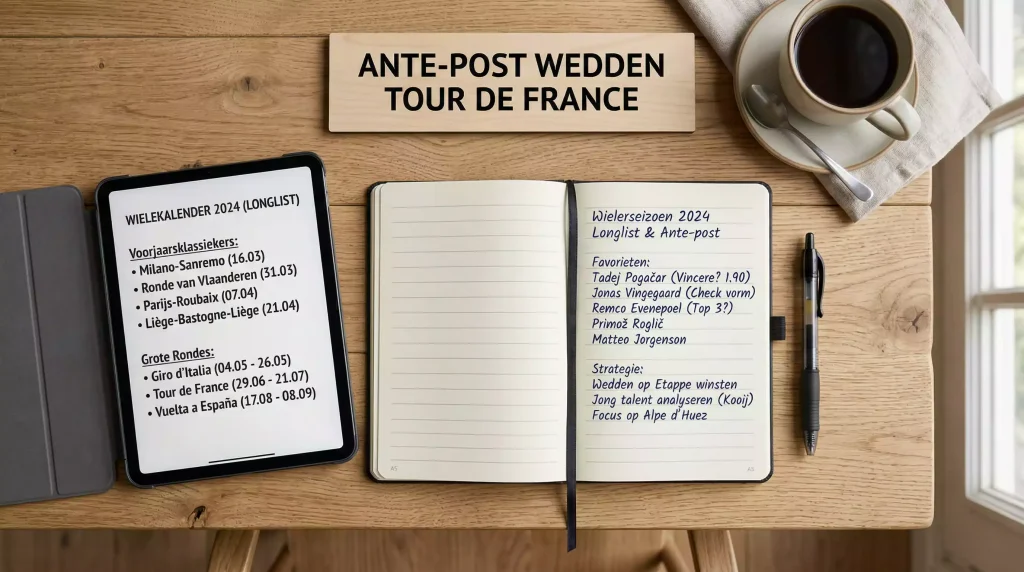 ANTE-POST WEDDEN
TOUR DE FRANCE
WIELEKALENDER 2024 (LONGLIST)
Voorjaarsklassiekers:
• Milano-Sanremo (16.03)
• Ronde van Vlaanderen (31.03)
• Parijs-Roubaix (07.04)
• Liège-Bastogne-Liège (21.04)
Grote Rondes:
• Giro d'Italia (04.05 - 26.05)
• Tour de France (29.06 - 21.07)
• Vuelta a España (17.08 - 08.09)
Wielerseizoen 2024
Longlist & Ante-post
Favorieten:
Tadej Pogačar (Vincere? 1.90)
Jonas Vingegaard (Check vorm)
Remco Evenepoel (Top 3?)
Primož Roglič
Matteo Jorgenson
Strategie:
Wedden op Etappe winsten
Jong talent analyseren (Kooij)
Focus op Alpe d'Huez
A5
A5